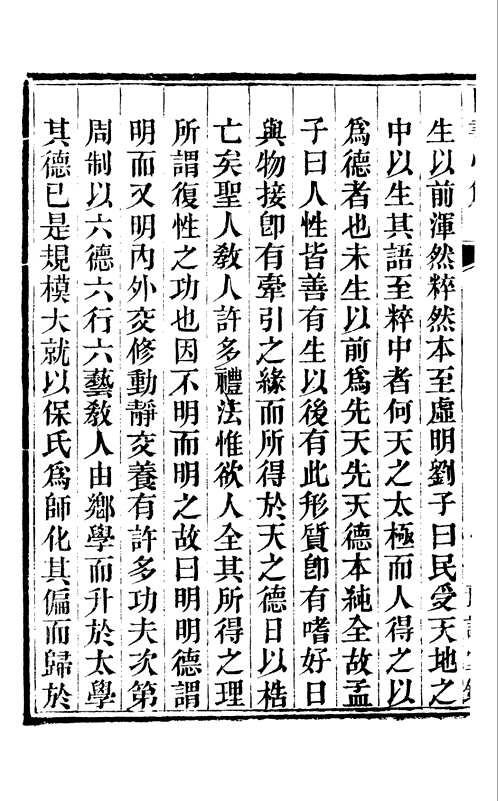 生以前渾然粹然本至虛明劉子曰民受天地之
中以生其語至粹中者何天之太極而人得之以
爲德者也未生以前爲先天先天德本純全故孟
子曰人性皆善有生以後有此形質卽有嗜好日
與物接卽有牽引之緣而所得於天之德日以梏
亡矣聖人敎人許多禮法惟欲人全其所得之理
所謂復性之功也因不明而明之故曰明明德謂
明而又明內外交修動靜交養有許多功夫次第
周制以六德六行六藝敎人由鄉學而升於太學
其德已是規模大就以保氏爲師化其偏而歸於